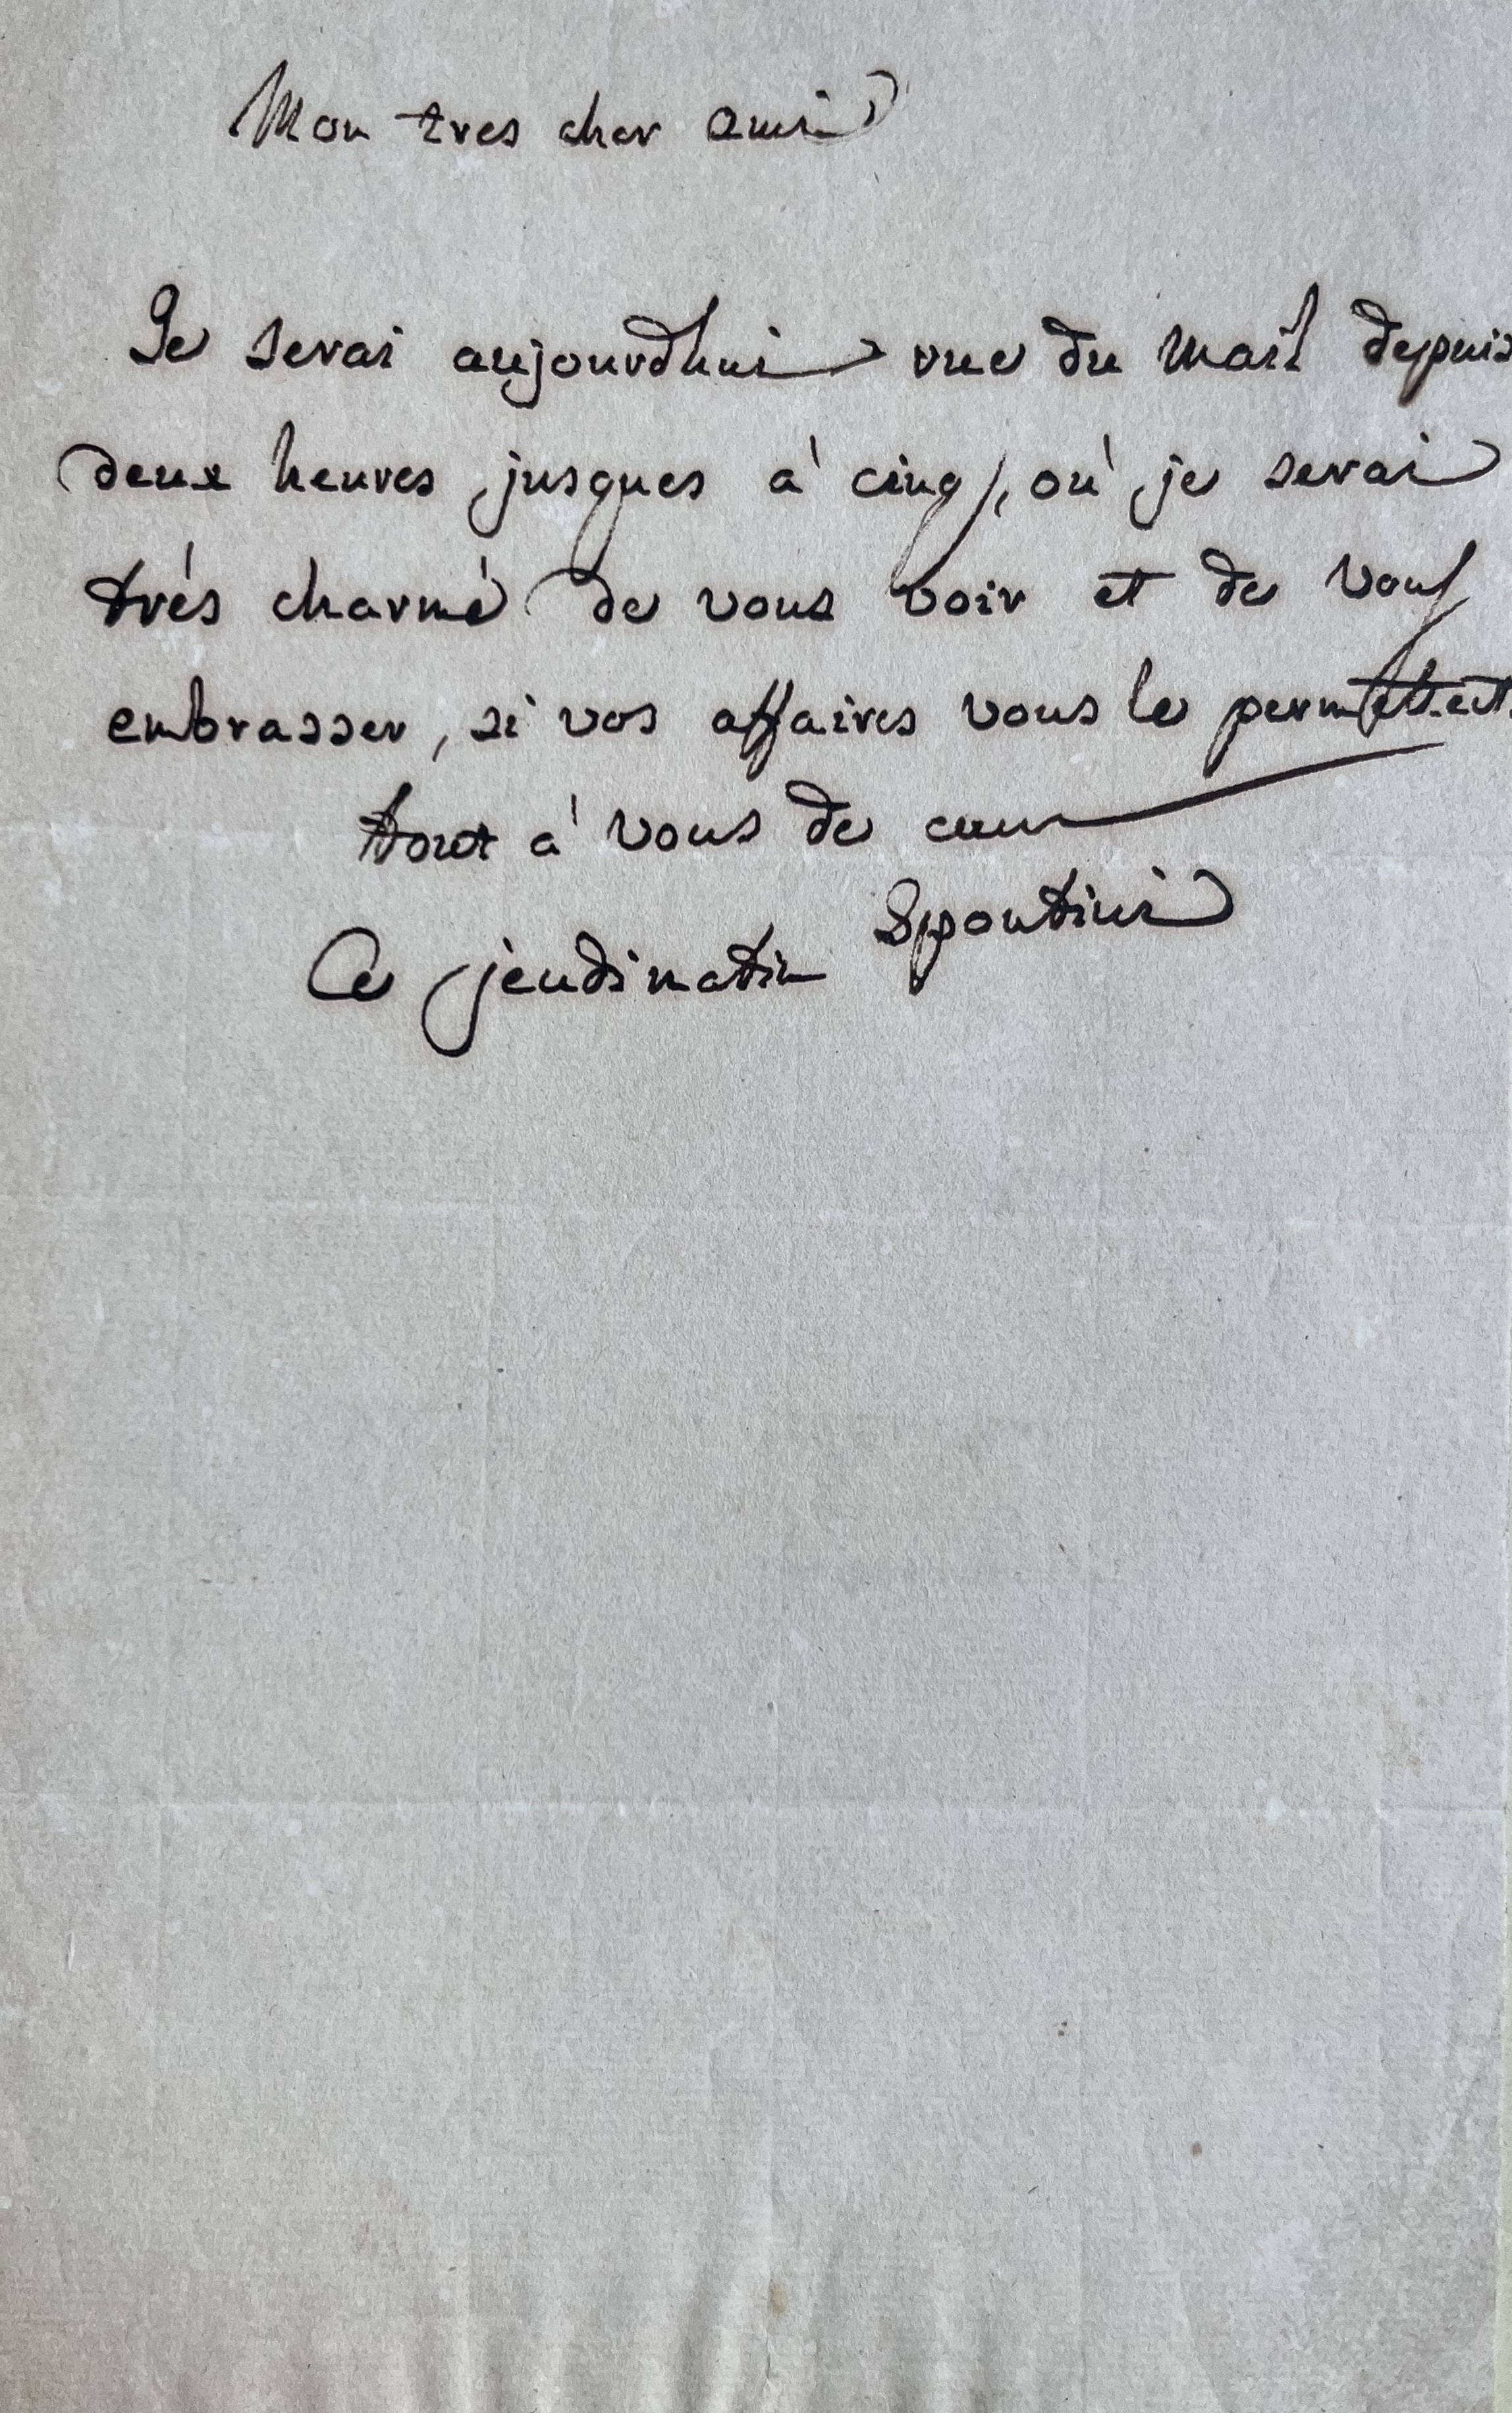 Mon tres cher ami
Je serai aujourdhui rue du Mail depuis
deux heures jusques à cinq, où je serai
trés charmé de vous voir et de vous
embrasser, si vos affaires vous le permettent.
tout à vous de cœur
Spontini
Ce jeudi matin